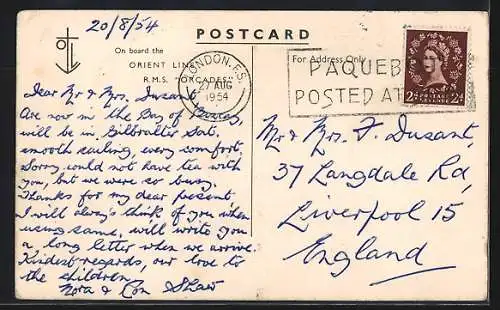 20/8/54
POSTCARD
On board the
ORIENT LINE
R.M.S. "ORCADES"
For Address Only
LONDON. F.S.
27 AUG
1954
PAQUEB
POSTED AT
POSTAGE REVENUE
2D 2D
Dear Mr & Mrs. Dusant,
Are now in the Bay of Biscay
will be in Gilbralter Sat.
smooth sailing, every comfort.
Sorry could not have tea with
you, but we were so busy.
Thanks for my dear present
I will always think of you when
using same, will write you
a long letter when we arrive.
Kindest regards, our love to
the children
Nora & Con Shaw
Mr & Mrs. F. Dusant,
37 Langdale Rd,
Liverpool 15
England